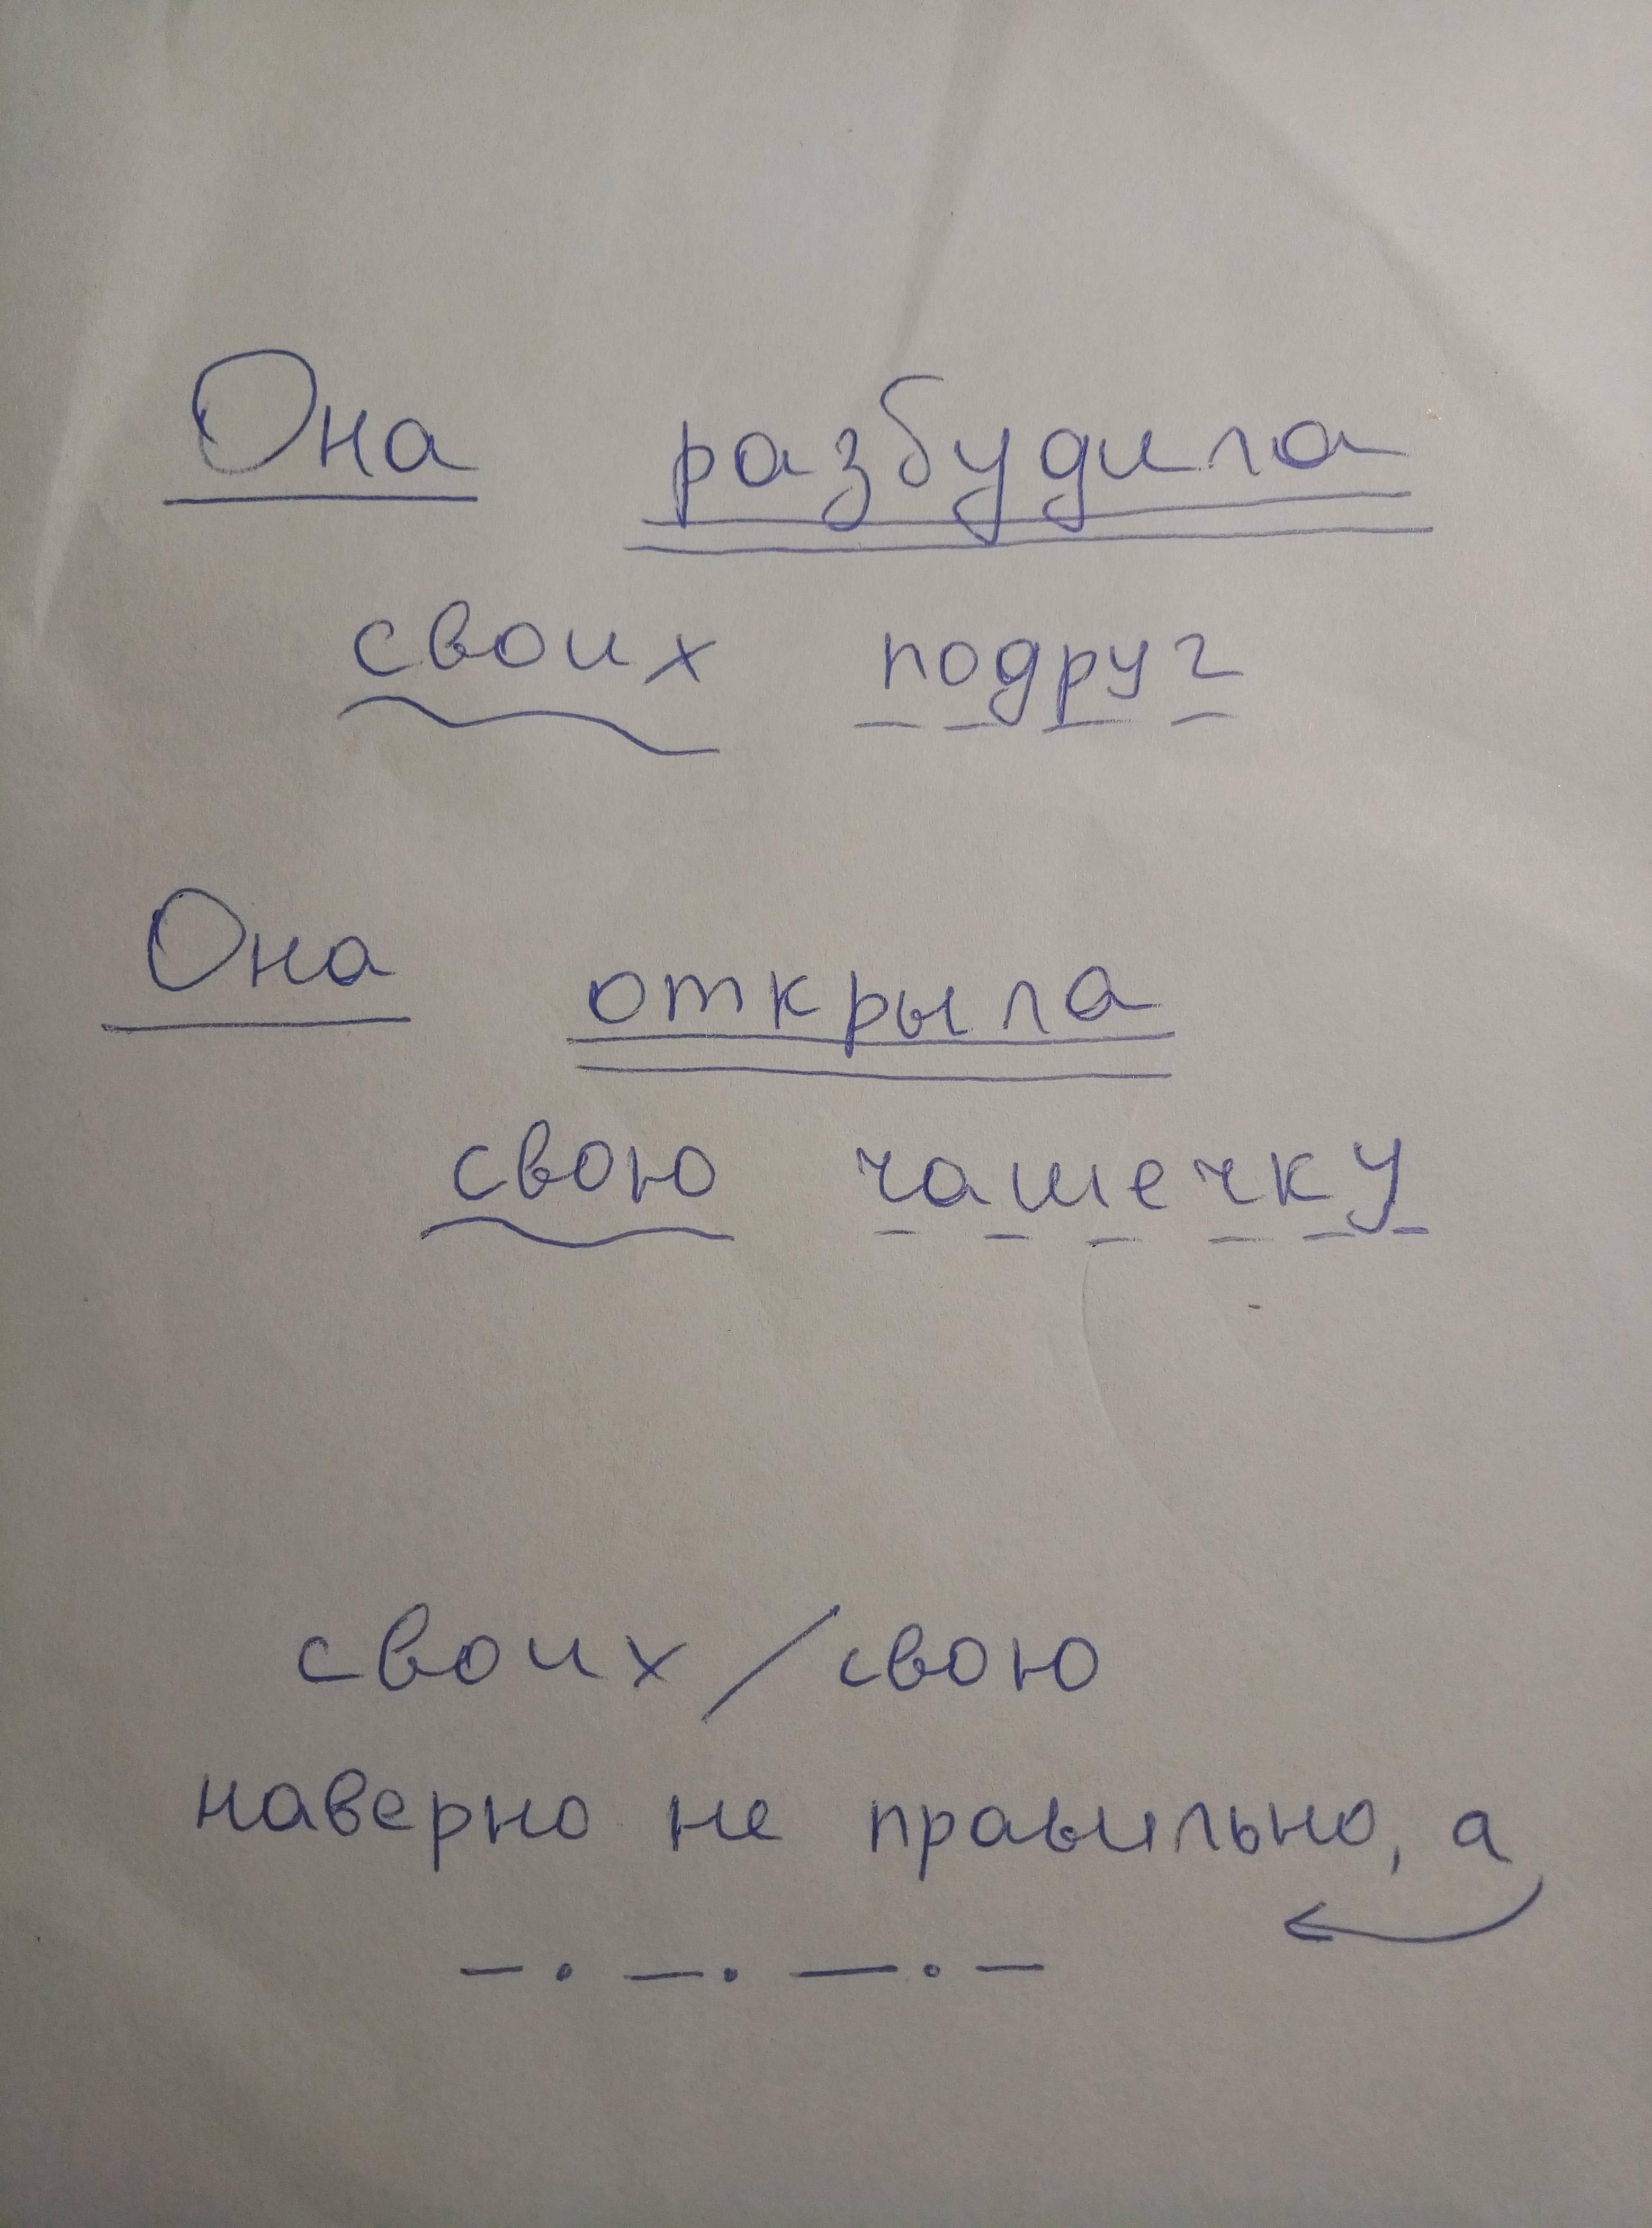 Она разбудила
своих подруг
Она открыла
свою чашечку
своих/свою
наверно не правильно, а